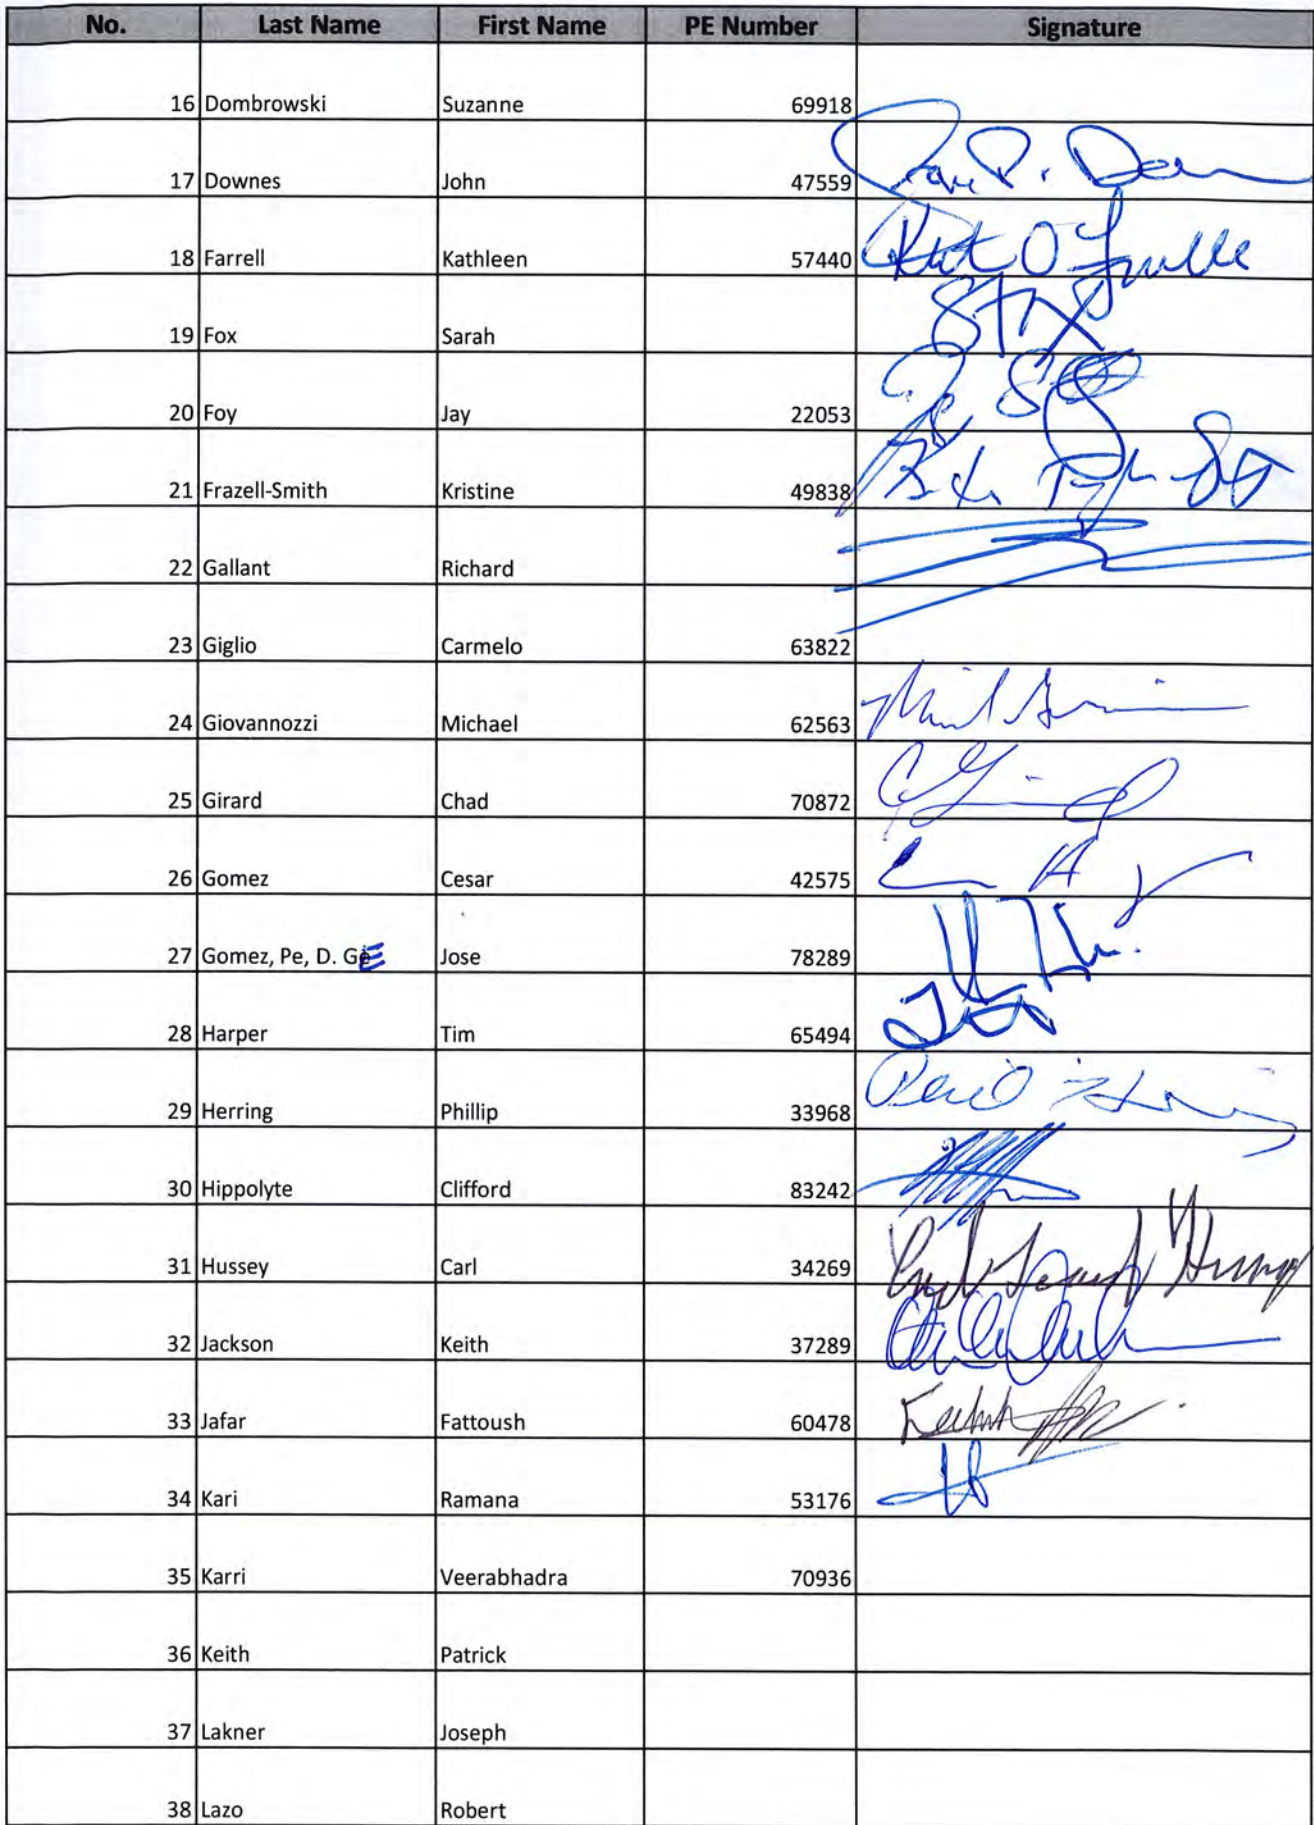 No. Last Name First Name PE Number Signature
16 Dombrowski Suzanne 69918
17 Downes John 47559
18 Farrell Kathleen 57440
19 Fox Sarah
20 Foy Jay 22053
21 Frazell-Smith Kristine 49838
22 Gallant Richard
23 Giglio Carmelo 63822
24 Giovannozzi Michael 62563
25 Girard Chad 70872
26 Gomez Cesar 42575
27 Gomez, Pe, D. GE Jose 78289
28 Harper Tim 65494
29 Herring Phillip 33968
30 Hippolyte Clifford 83242
31 Hussey Carl 34269
32 Jackson Keith 37289
33 Jafar Fattoush 60478
34 Kari Ramana 53176
35 Karri Veerabhadra 70936
36 Keith Patrick
37 Lakner Joseph
38 Lazo Robert